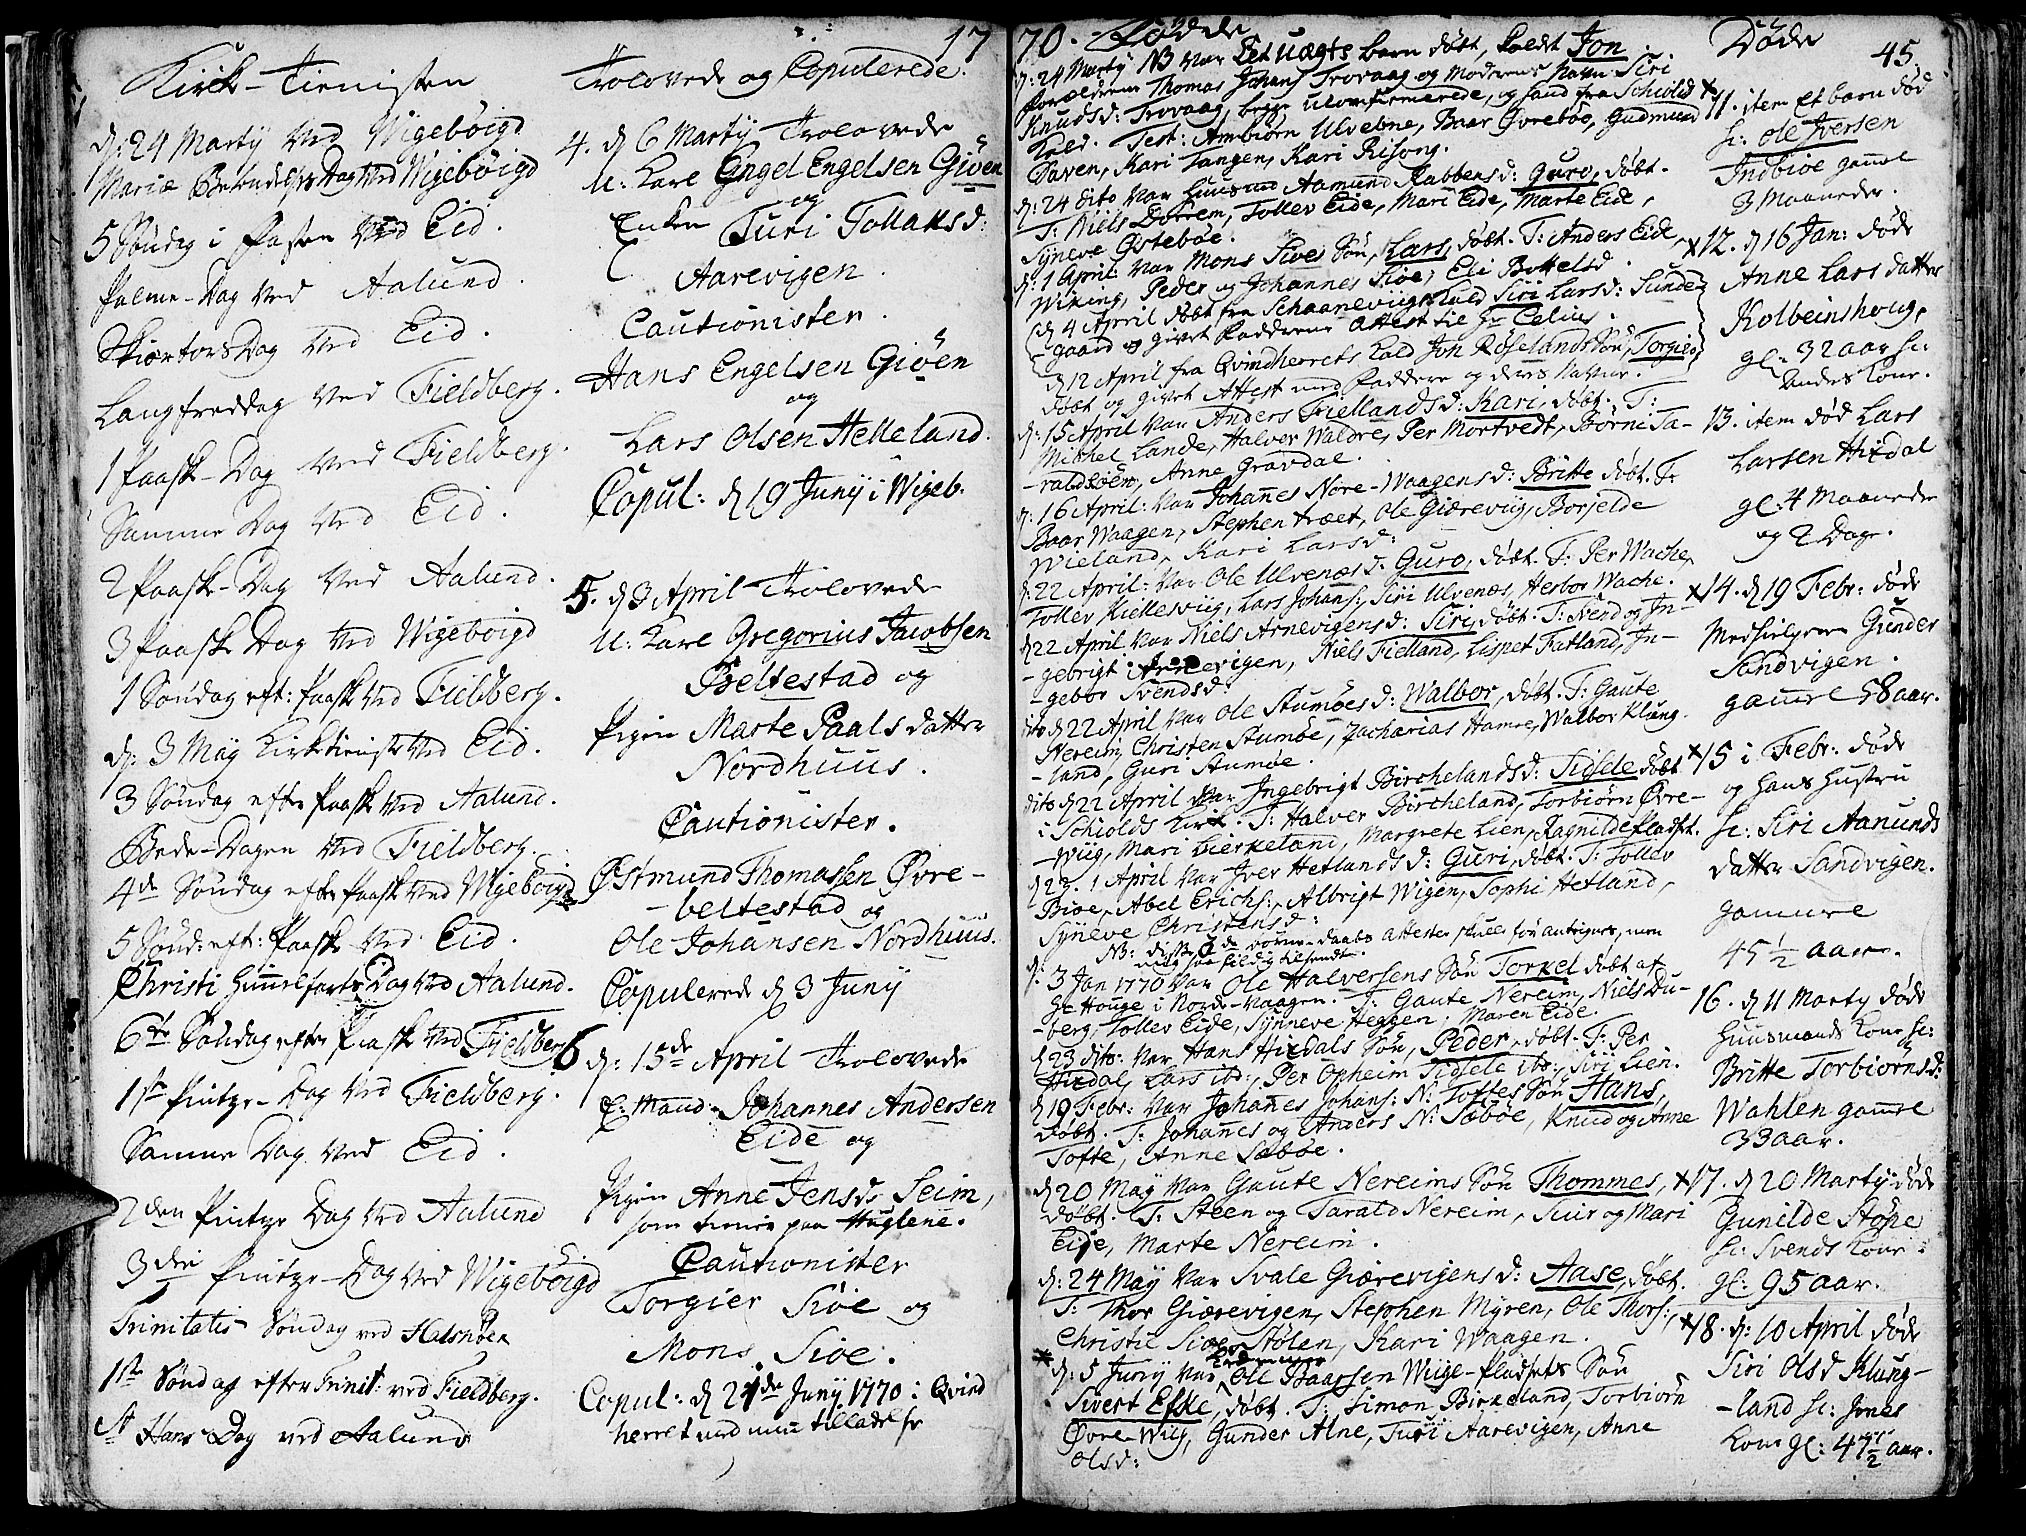 1770.
45.
Kirk-Tienisten
d: 24 Marty ved Wigebøigd
Mariæ Bebudelses Dag ved Wigebøigd
5 Søndag i Fasten ved Eid.
Palme-Dag ved Aalund.
Skiertors Dag ved Eid.
Langfreddag ved Fieldberg.
1 Paaske-Dag ved Fieldberg.
Samme Dag ved Eid.
2 Paaske-Dag ved Aalund.
3 Paaske Dag ved Wigebøigd
1 Søndag eft: Paaske ved Fieldberg.
d: 3 May Kirketieniste ved Eid.
3 Søndag efter Paaske ved Aalund.
Bede-Dagen ved Fieldberg.
4de Søndag efter Paaske ved Wigebøigd
5 Sønd: eft: Paaske ved Eid.
Christi Himmelfarts Dag ved Aalund.
6te Søndag efter Paaske ved Fieldberg
1ste Pintze-Dag ved Fieldberg.
Samme Dag ved Eid.
2den Pintze Dag ved Aalund
3die Pintze-Dag ved Wigebøigd
Trinitatis Søndag ved Halsnøen
1ste Søndag efter Trinit: ved Fieldberg.
St Hans Dag ved Aalund
Trolovede og Copulerede.
4. d 6 Marty Trolovede
U: Karl Engel Engelsen Giøen
og
Enken Turi Tollaksd:
Aarevigen.
Cautionister.
Hans Engelsen Giøen
og
Lars Olsen Helleland.
Copul: d 19 Juny i Wigeb.
5. d 3 April Trolovede
U: Karl Gregorius Jacobsen
Beltestad og
Pigen Marte Paals datter
Nordhuus.
Cautionister.
Østmund Thomassen Øvre-
-beltestad og
Ole Johansen Nordhuus.
Copulerede d 3 Juny
6 d: 15de April Trolovede
E: Mand Johannes Andersen
Eide og
Pigen Anne Jensd: Seim,
som tiener paa Huglene.
Cautionister
Torgier Sioe og
Mons Sioe.
Copul: d 21de Juny 1770 i Qvind
herret med min tilladelse
Fødde
d: 24 Marty NB var Eet uægte barn døbt, kaldt Jon
Forældrene Thomas Johans: Trovaag og Moderens Navn Siri
Knudsd: Trovaag, begge uconfirmerede, og fra Schiold
Kald. Test: Ambiørn Ulvebne, Baar Øvrebøe, Gudmund
Saven, Kari Tangen, Kari Risong.
d: 24 dito var Huusmd Aamund Rabbens d: Guro, døbt.
T: Niels Dorrem, Tollev Eide, Mari Eide, Marte Eide,
Syneve Østebøe.
d: 1 April: var Mons Sioes Søn, Lars, døbt. T: Anders Eide,
Wiking, Peder og Johannes Sioe, Eli Bottelsd.
d 4 April døbt fra Schaaneviigs Kald Siri Larsd: Sunde
gaard og givet Fadderne Attest til Hr Celius.
d 12 April fra Qvindherrets Kald Jon Røselands Søn, Torgies,
døbt og givet Attest med Faddere og deres Navne.
d: 15 April var Anders Fiellands d: Kari, døbt. T:
Mikkel Lande, Halver Waldre, Per Mortvedt, Børni Ta-
-raldsøen, Anne Gravdal.
d: 16 April: var Johanes Nore-Waagens d: Britte døbt. T:
Baar Waagen, Stephen træet, Ole Giereviig, Borjelde
Wieland, Kari Larsd:
d: 22 April: var Ole Ulvenæs d: Guro, døbt. T: Per Wache,
Tollev Kiellesviig, Lars Johans:, Siri Ulvenæs, Herbor Wache.
d 22 April var Niels Arnevigens d: Siri, døbt. T: Svend og In-
-gebrigt Arnevigen, Niels Fielland, Lispet Fatland, In-
-gebor Svendsd:
dito d 22 April var Ole Stumøes d: Walbor, døbt. T: Gaute
Nereim, Christen Stumøe, Zacharias Hamre, Walbor Klung-
-land, Guri Stumøe.
dito d 22 April var Ingebrigt Birchelands d: Sidsele døbt
i Schiolds Kirk. T: Halver Bircheland, Torbiørn Øvre-
-Wiig, Mari Bierkeland, Margrete Lien, Ragnilde Pladset.
d 23. April var Iver Hetlands d: Guri, døbt. T: Tollev
Bioe, Abel Erichs:, Albrigt Wigen, Sophi Hetland,
Syneve Christensd:
d: 3 Jan 1770 var Ole Halversens Søn Torkel døbt af
Hr Houge i Norde-Vaagen. T: Gaute Nereim, Niels Du-
-berg, Tollev Eide, Synneve Heggen, Maren Eide.
d 23 dito: var Hans Hixdals Søn, Peder, døbt. T: Per
Hixdal, Lars ibd:, Per Opheim Sidsele ibd:, Siri Lien.
d 19 Febr: var Johannes Johans: N: Toftes Søn Hans,
døbt. T: Johannes og Anders N: Søbøe, Knud og Anne
Tofte, Anne Søbøe.
d 20 May var Gaute Nereims Søn Thommes,
døbt. T: Steen og Tarald Nereim, Siur og Mari
Eide, Marte Nereim.
d: 24 May var Svale Gierevigens d: Aase, døbt.
T: Thor Gierevigen, Stephen Myren, Ole Thors:,
Christi Sioe, Stølen, Kari Waagen.
d: 5 Juny var Ole Baarsen Wiige-Pladsets Søn
Sivert Efke, døbt. T: Simon Birkeland, Torbiørn
Øvre Wiig, Gunder Alne, Turi Aarevigen, Anne
Olsd:
Døde
11. item et barn død
sc: Ole Iversen
Indbioe gamel
3 Maaneder
12. d 16 Jan: døde
Anne Lars datter
Kolbeinshoug,
gl: 32 aar sc:
Andes kone.
13. item død Lars
Larsen Hixdal
gl: 4 Maaneder
og 2 Dage.
14. d 19 Febr: døde
Gunder
Sandvigen.
gamel 58 aar.
15 i Febr: døde
og hans Hustru
sc: Siri Aamunds
datter Sandvigen.
gammel
45 1/2 aar.
16. d 11 Marty døde
Huusmands kone sc:
Britte Torbiørnsd:
Wahlen gamel
33 aar.
17. d 20 Marty døde
Gunilde Støpe
sc: Svends kone
gl: 95 aar.
18. d: 10 April døde
Siri Olsd Klung-
-land sc: Jones
kone gl: 47 1/2 aar.